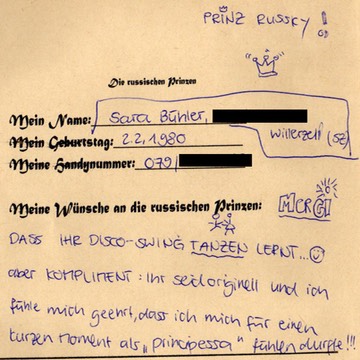 PRINZ RUSSKY!
Die russischen Prinzen
Mein Name: Sara Bühler,
Willerzell (SZ)
Mein Geburtstag: 2.2.1980
Meine Handynummer: 079/
Meine Wünsche an die russischen Prinzen: MERCI
DASS IHR DISCO-SWING TANZEN LERNT...
aber KOMPLIMENT: Ihr seid originell und ich
fühle mich geehrt, dass ich mich für einen
kurzen Moment als „principessa" fühlen durfte!!!